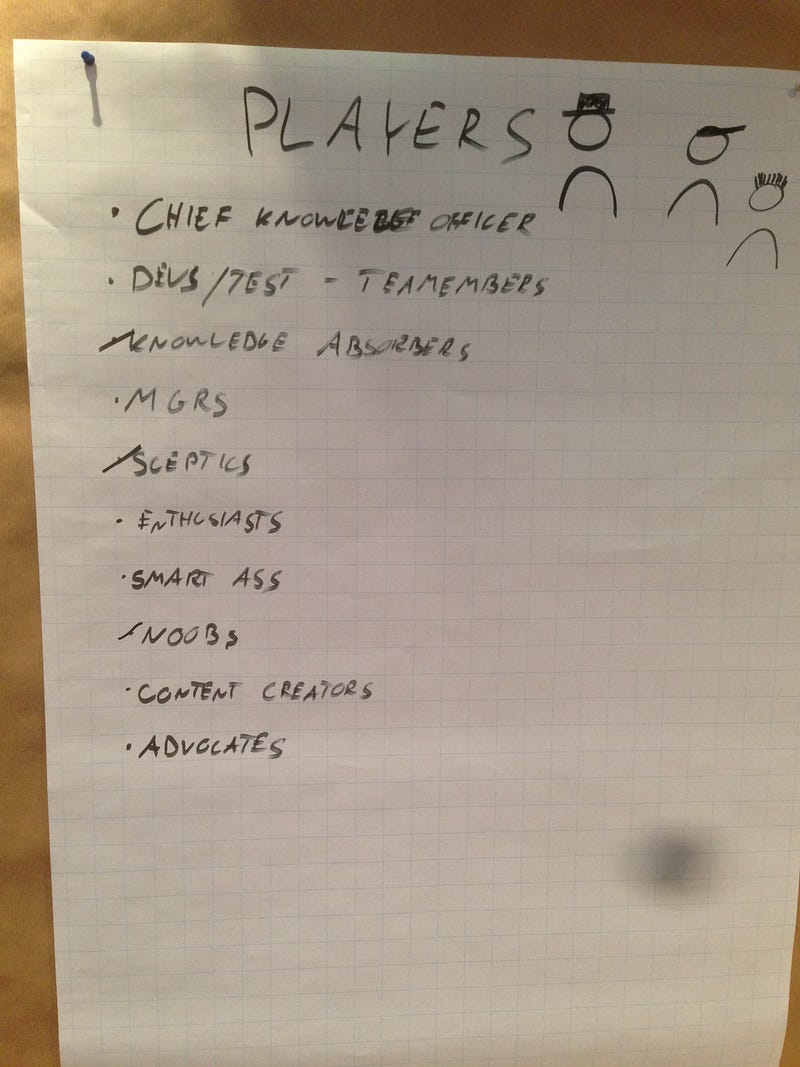 PLAYERS
• CHIEF KNOWLEDGE OFFICER
• DEVS/TEST - TEAMEMBERS
KNOWLEDGE ABSORBERS
• MGRS
SCEPTICS
• ENTHUSIASTS
• SMART ASS
NOOBS
• CONTENT CREATORS
• ADVOCATES